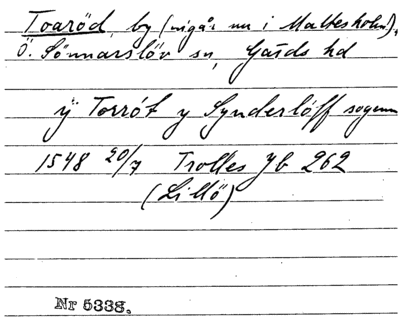 Toaröd, by (ingår nu i Maltesholm),
Ö. Sönnarslöv sn, Gärds hd
ÿ Torrót y Synderlöff sogenn
1548 20/7 Trolles Jb 262
(Lillö)
Nr 5338.